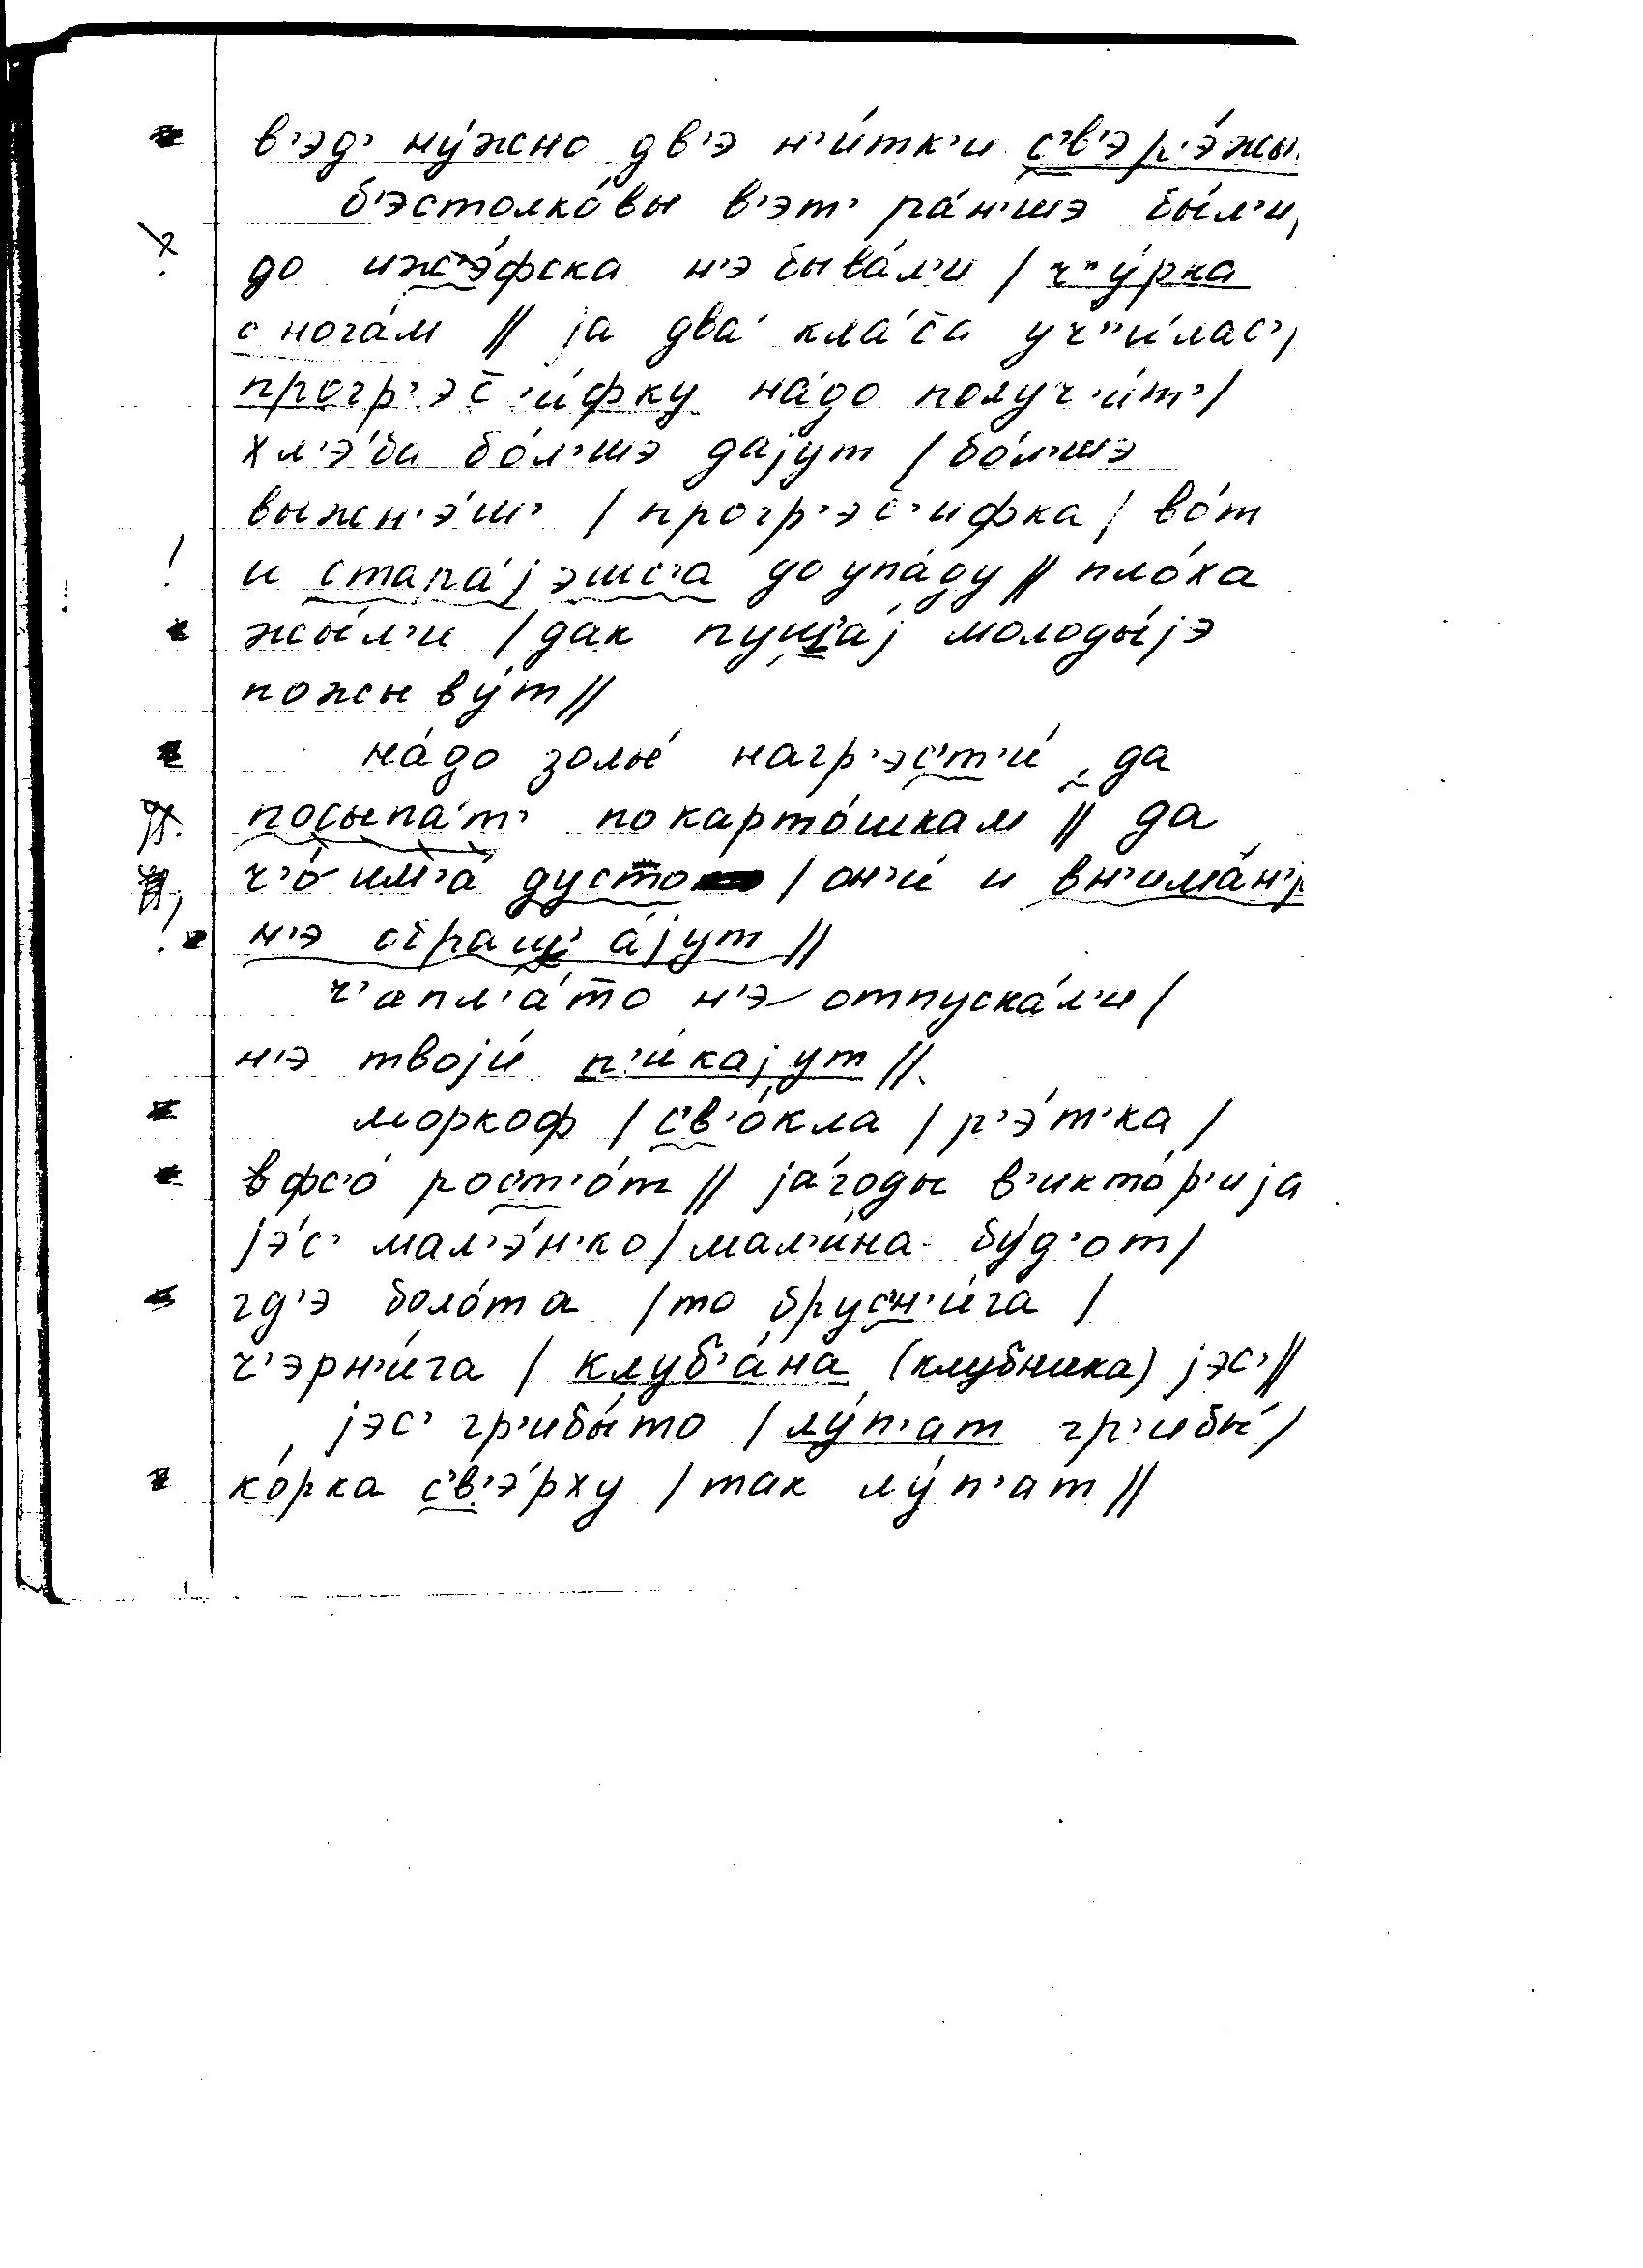 в'эд' ну́жно дв'э н'и́тк'и с'в'эр'э́жы
б'эстолко́вы в'эт' ра́н'шэ бы́л'и,
до ижэ́фска н'э быва́л'и / ч''у́рка
с нога́м // jа два́ кла́с̄а уч''и́лас' /
прогр'эс̄'и́фку на́до получ'и́т' /
хл'э́ба бо́л'шэ даjут / бо́л'шэ
выжн'э́ш' / прогр'эс̄'ифка / во́т
и стара́jэшс'а до упа́ду // пло́ха
жы́л'и / дак пуш̄'аj молоды́jэ
пожыву́т //
на́до золы́ нагр'эс'т'и́, да
посыпа́т' по карто́шкам // да
ч'о́ им'а́ дусто / он'и́ и вн'има́н'j
н'э обращ'а́jут //
ч'апл'а́то н'э отпуска́л'и /
н'э твоjи́ п'и́каjут //
моркоф / с'в'о́кла / р'э́т'ка /
фс'о́ рос'т'о́т // jа́годы в'икто́р'иjа
jэ́с' мал'э́н'ко / мал'и́на бу́д'от /
гд'э боло́та / то брус'н'и́га /
ч'эрн'и́га / клуб'а́на (клубника) jэс' //
jэс' гр'ибы́то / лу́п'ат гр'ибы́ /
ко́рка с'в'э́рху / так лу́п'ат //